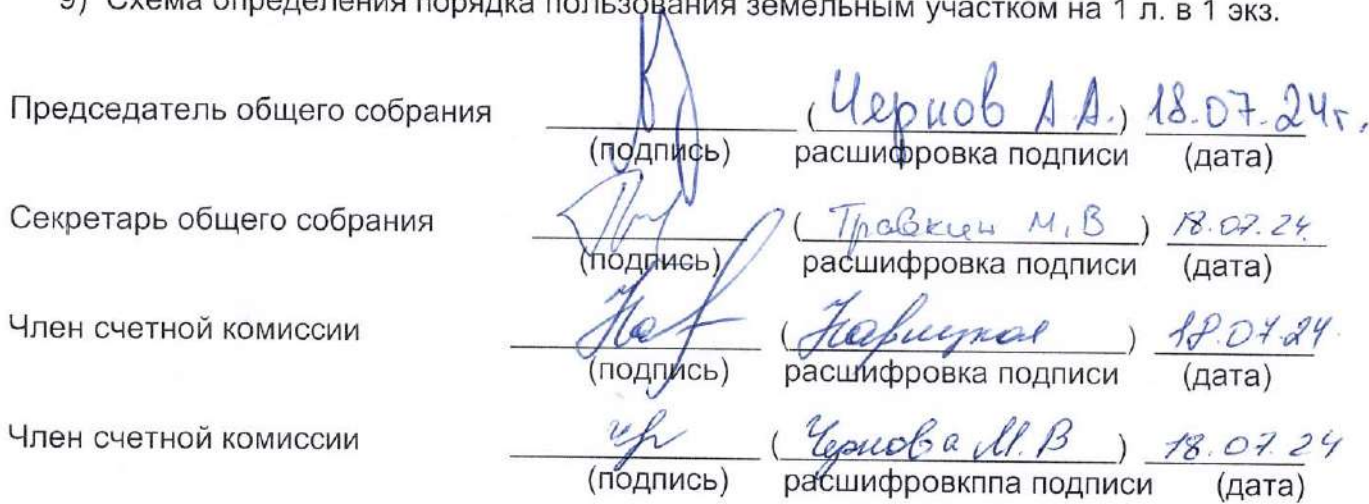 9) Схема определения порядка пользования земельным участком на 1 л. в 1 экз.
Председатель общего собрания (Чернов А.А.) 18.07.24г.
(подпись) расшифровка подписи (дата)
Секретарь общего собрания (Травкин М,В) 18.07.24.
(подпись) расшифровка подписи (дата)
Член счетной комиссии (Навицкая) 18.07.24.
(подпись) расшифровка подписи (дата)
Член счетной комиссии (Чернова М.В) 18.07.24
(подпись) расшифровкппа подписи (дата)